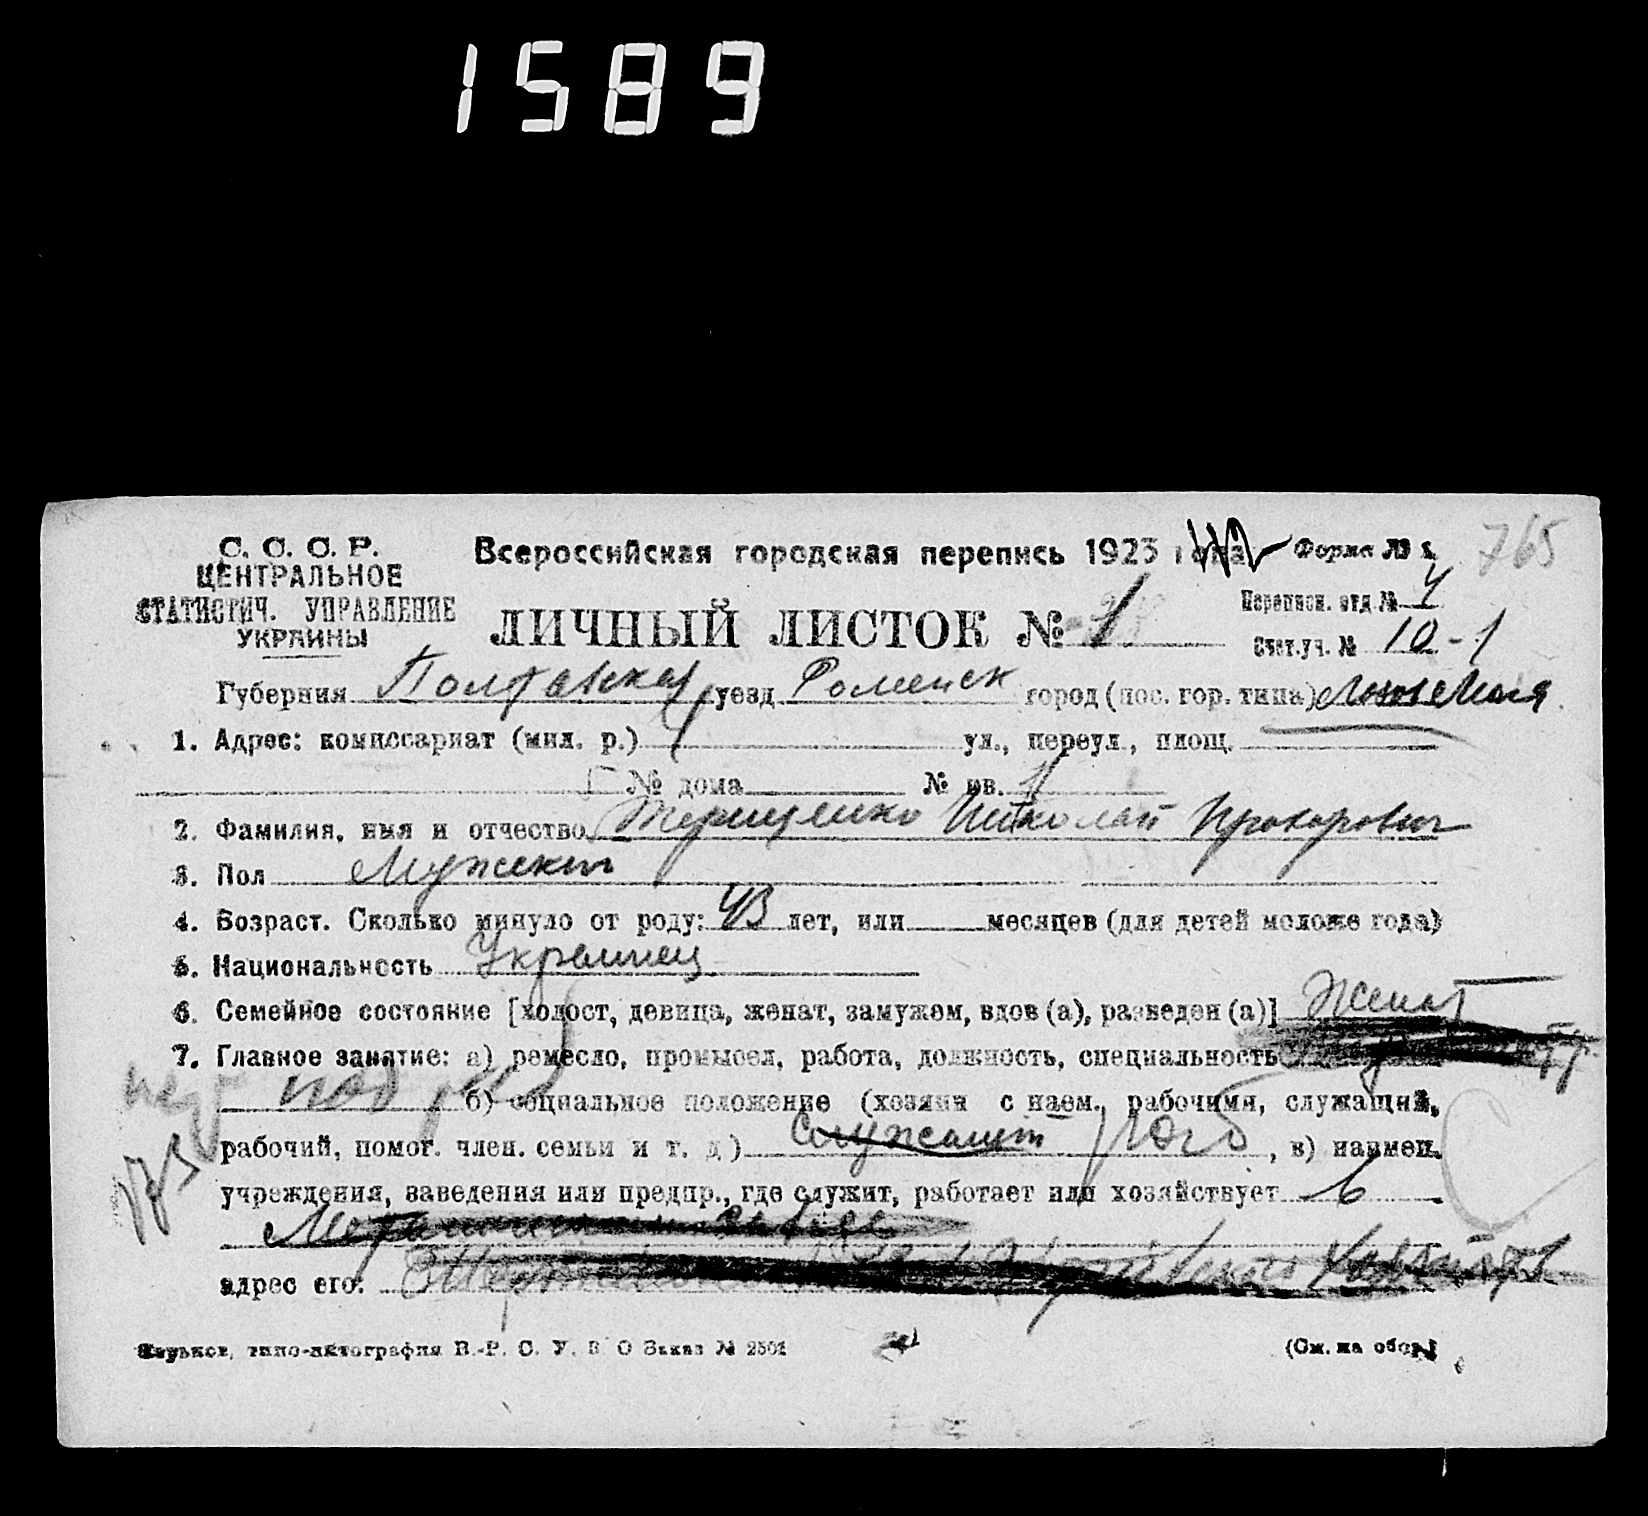 1589
С. С. С. Р.
ЦЕНТРАЛЬНОЕ
СТАТИСТИЧ. УПРАВЛЕНИЕ
УКРАИНЫ
Всероссийская городская перепись 1923 года
Форма № 1.
765
ЛИЧНЫЙ ЛИСТОК № 1
Переписн. отд. № 4
Счет. уч. № 10-1
Губерния Полтавская уезд Роменск город (пос. гор. типа)
1. Адрес: комиссариат (мил. р.) ул., переул., площ.
№ дома № кв.
2. Фамилия, имя и отчество Терещенко Николай Прохорович
3. Пол Мужской
4. Возраст. Сколько минуло от роду: 43 лет, или месяцев (для детей моложе года)
5. Национальность Украинец
6. Семейное состояние [холост, девица, женат, замужем, вдов (а), разведен (а)] Женат
7. Главное занятие: а) ремесло, промысел, работа, должность, специальность
б) социальное положение (хозяин с наем. рабочими, служащий,
рабочий, помог. член. семьи и т. д.) Служащий , в) наимен.
учреждения, заведения или предпр., где служит, работает или хозяйствует в
адрес его:
Харьков, типо-литография В.-Р. С. У. В. О Заказ № 2501
(См. на обор.)